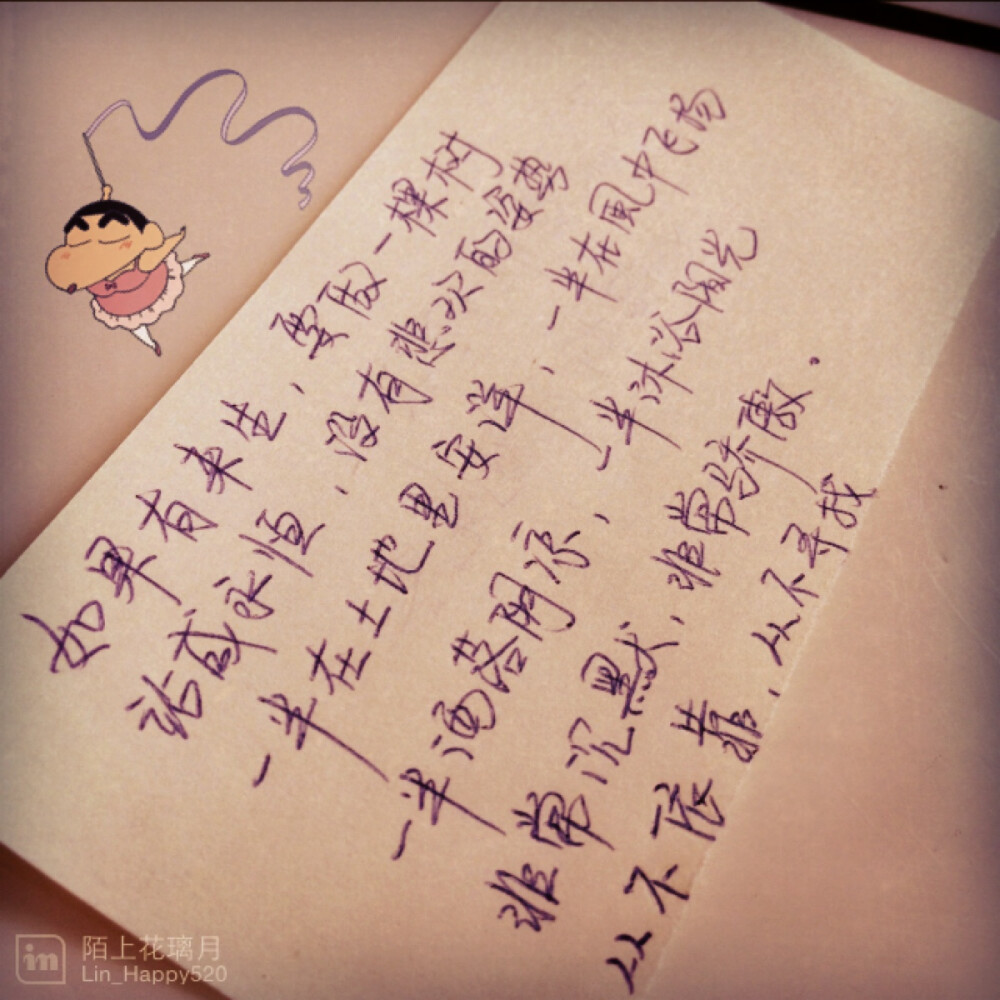 如果有来生，要做一棵树
站成永恒，没有悲欢的姿势
一半在土地里安详，一半在風中飞扬
一半洒落阴凉，一半沐浴阳光
非常沉默，非常骄傲。
从不依靠，从不寻找
in 陌上花璃月
Lin_Happy520